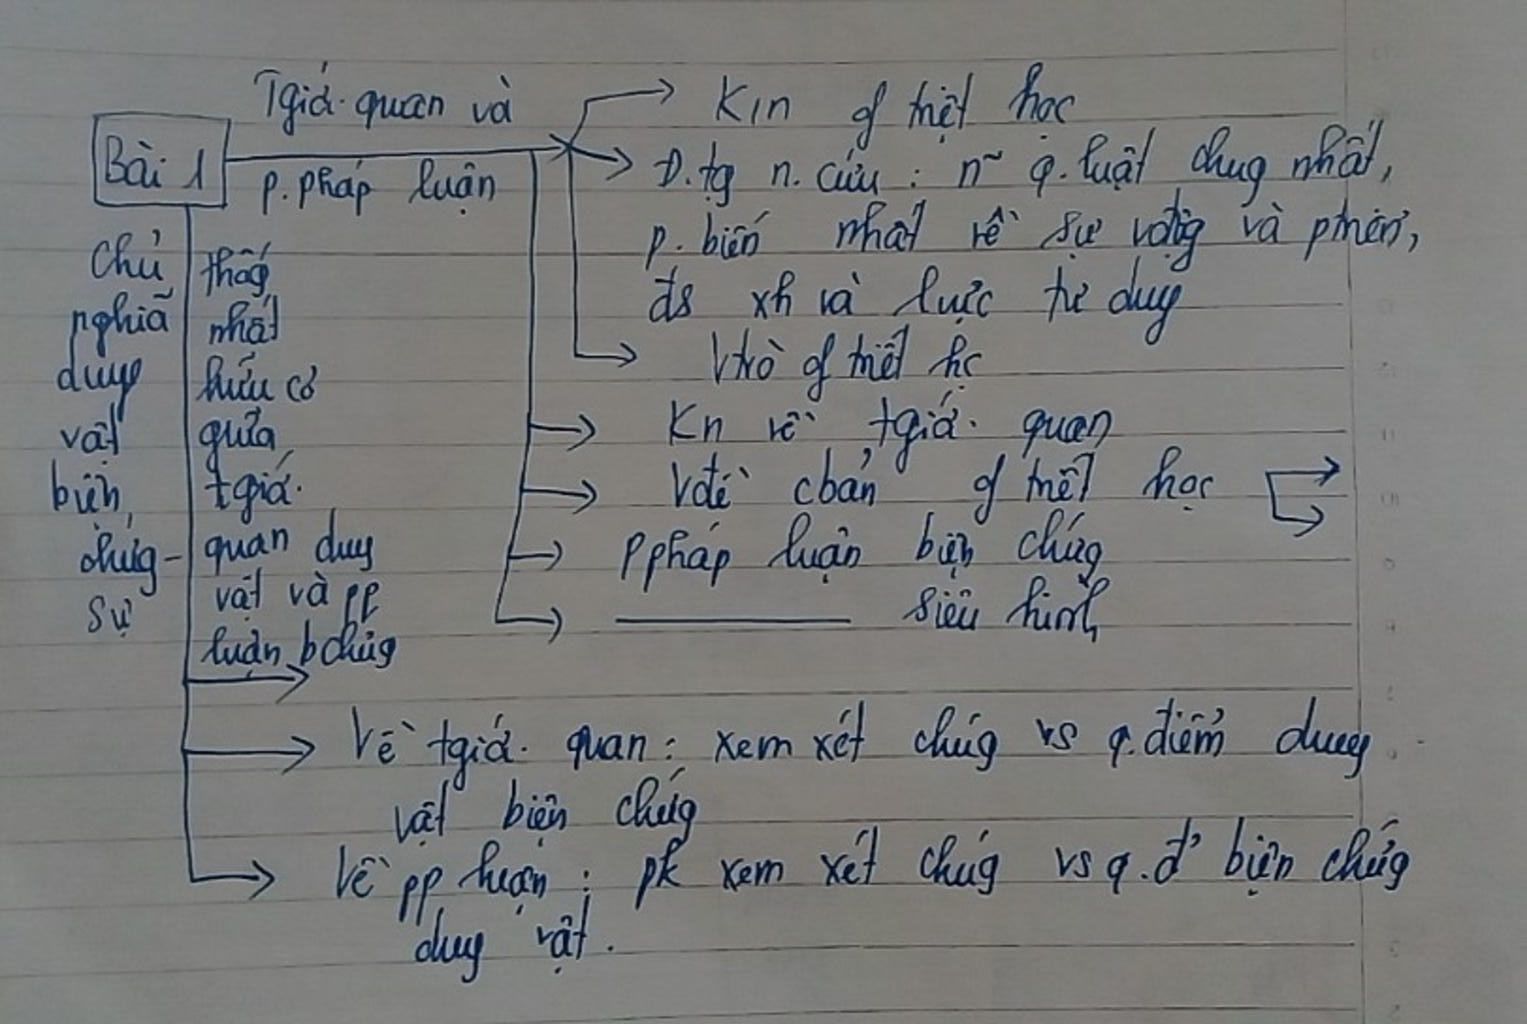 Bài 1
Tgiới quan và
p.pháp luận
K/n of triết học
Đ.tg n.cứu : n~ q.luật chug nhất,
p.biến nhất về sự vđộg và ptriển,
đs xh và lực tư duy
Vtrò of triết hc
Kn về tgiới quan
Vđề cbản of triết học
Ppháp luận biện chứg
siêu hình
Chủ
nghiã
duy
vật
biện
chứg -
sự
thốg
nhất
hữu cơ
giữa
tgiới
quan duy
vật và pp
luận bchứg
Về tgiới quan : xem xét chúg vs q.điểm duy
vật biện chứg
Về pp luận : pk xem xét chúg vs q.đ' biện chứg
duy vật.